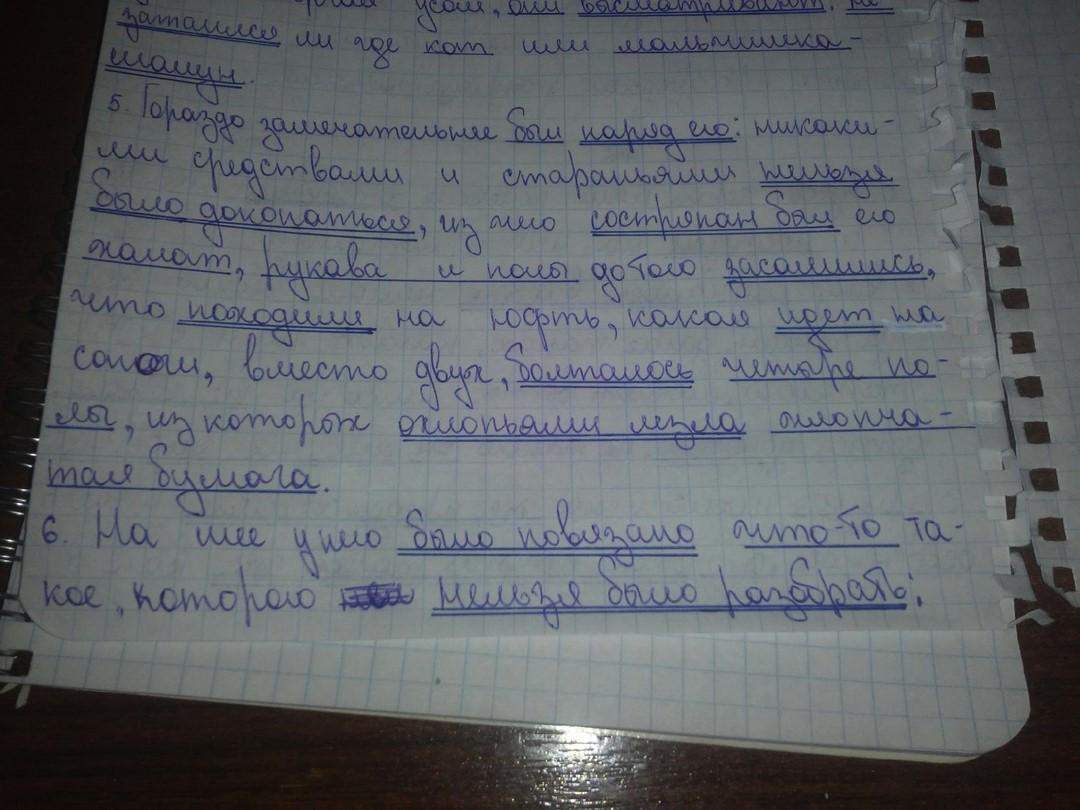 усом, они высматривают, не
затаился ли где кот или мальчишка-
шалун.
5. Гораздо замечательнее был наряд его: никаки-
ми средствами и стараньями нельзя
было докопаться, из чего состряпан был его
халат, рукава и полы до того засалились,
что походили на юфть, какая идет на
сапоги, вместо двух, болталось четыре по-
лы, из которых охлопьями лезла хлопча-
тая бумага.
6. На шее у него было повязано что-то та-
кое, которого нельзя было разобрать: